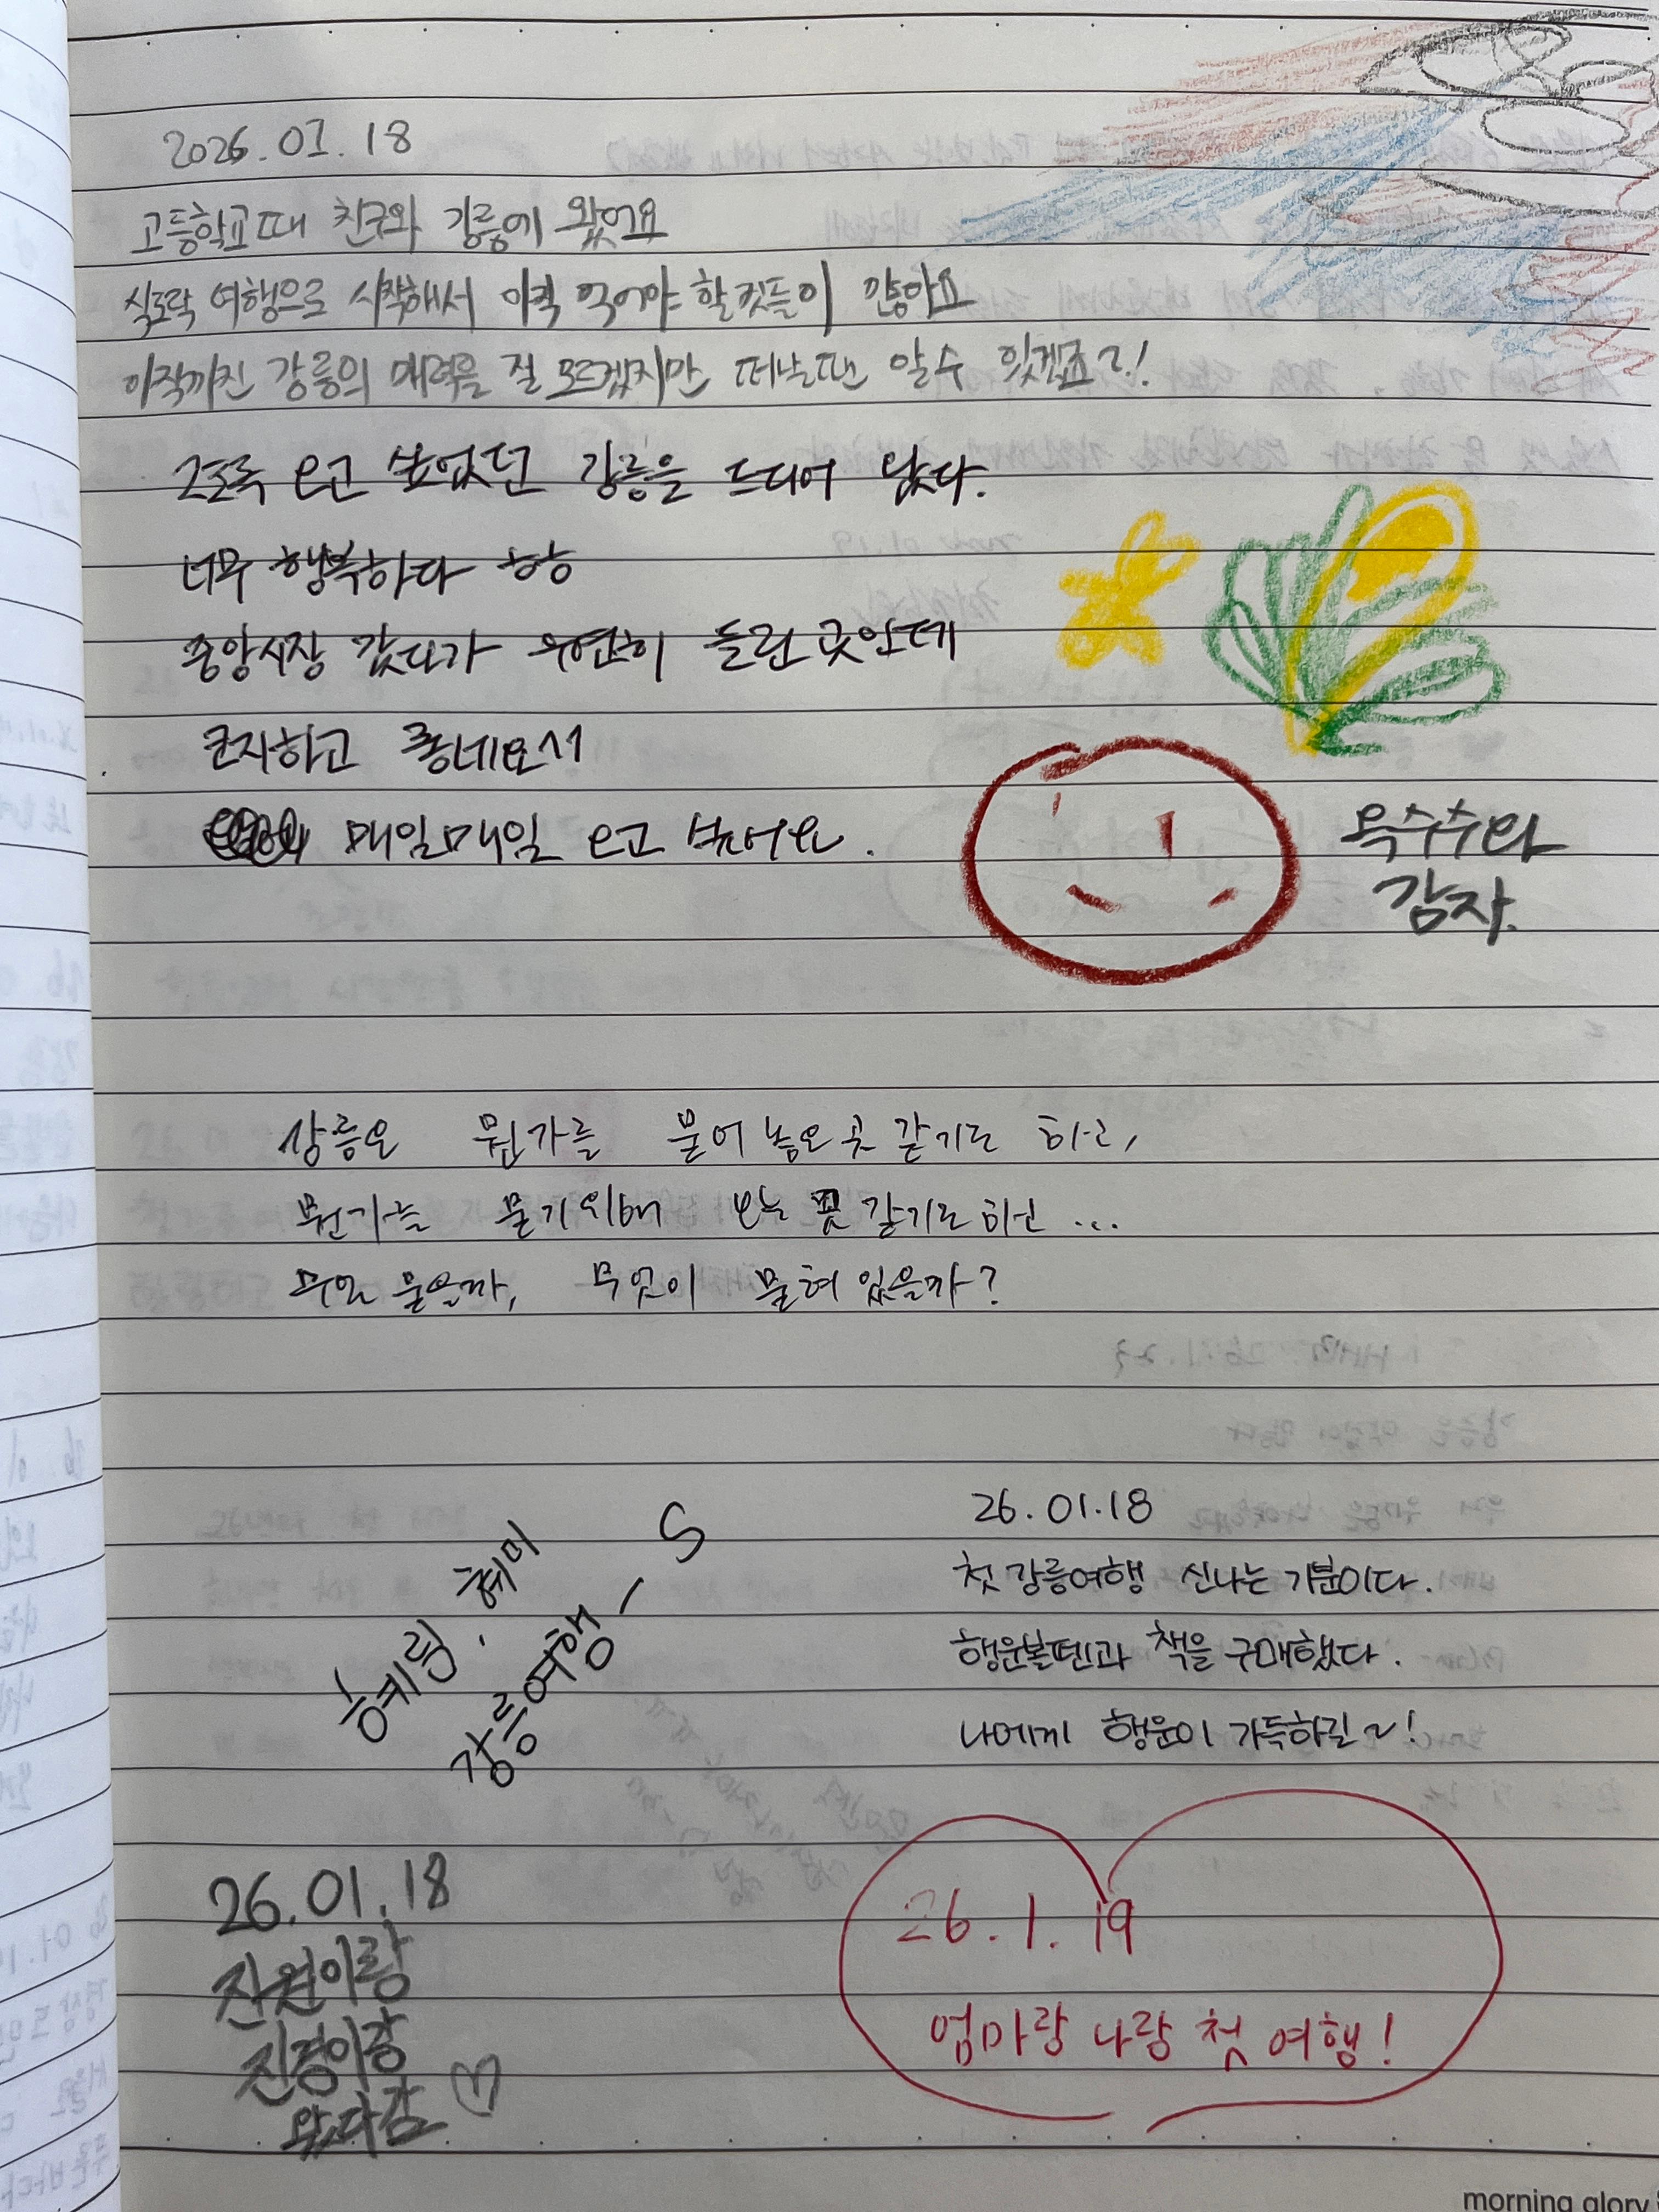 2026.01.18
고등학교때 친구와 강릉에 왔어요
식도락 여행으로 시작해서 아직 먹어야 할것들이 많아요
아직까진 강릉의 매력을 잘 모르겠지만 떠날땐 알수 있겠죠~!
그토록 오고 싶었던 강릉을 드디어 왔다.
너무 행복하다 항상
중앙시장 갔다가 우연히 들린 곳인데
코지하고 좋네요
매일매일 오고 싶어요.
옥수수와
감자.
강릉은 뭔가를 묻어 놓은 곳 같기도 하고,
뭔가를 묻기 위해 오는 곳 같기도 하고...
무얼 묻을까, 무엇이 묻혀 있을까?
26.01.18
첫 강릉여행 신나는 기분이다.
행운볼펜과 책을 구매했다.
나에게 행운이 가득하길~!
혜림, 혜미
강릉여행 - S
26.01.18
진원이랑
진경이랑
왔다감 ♡
26.1.19
엄마랑 나랑 첫 여행!
morning glory